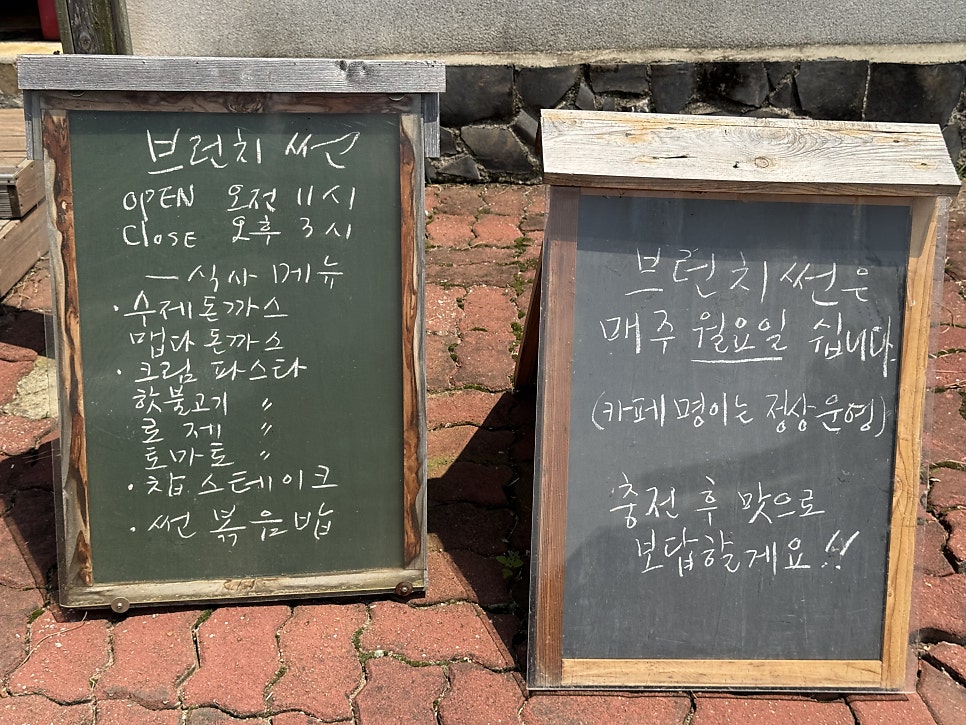 브런치 썬
OPEN 오전 11시
CLOSE 오후 3시
— 식사 메뉴
· 수제돈까스
맵다돈까스
· 크림 파스타
핫불고기 〃
로제 〃
토마토 〃
· 찹스테이크
· 썬 볶음밥
브런치썬은
매주 월요일 쉽니다
(카페명이는 정상운영)
충전 후 맛으로
보답할게요!!